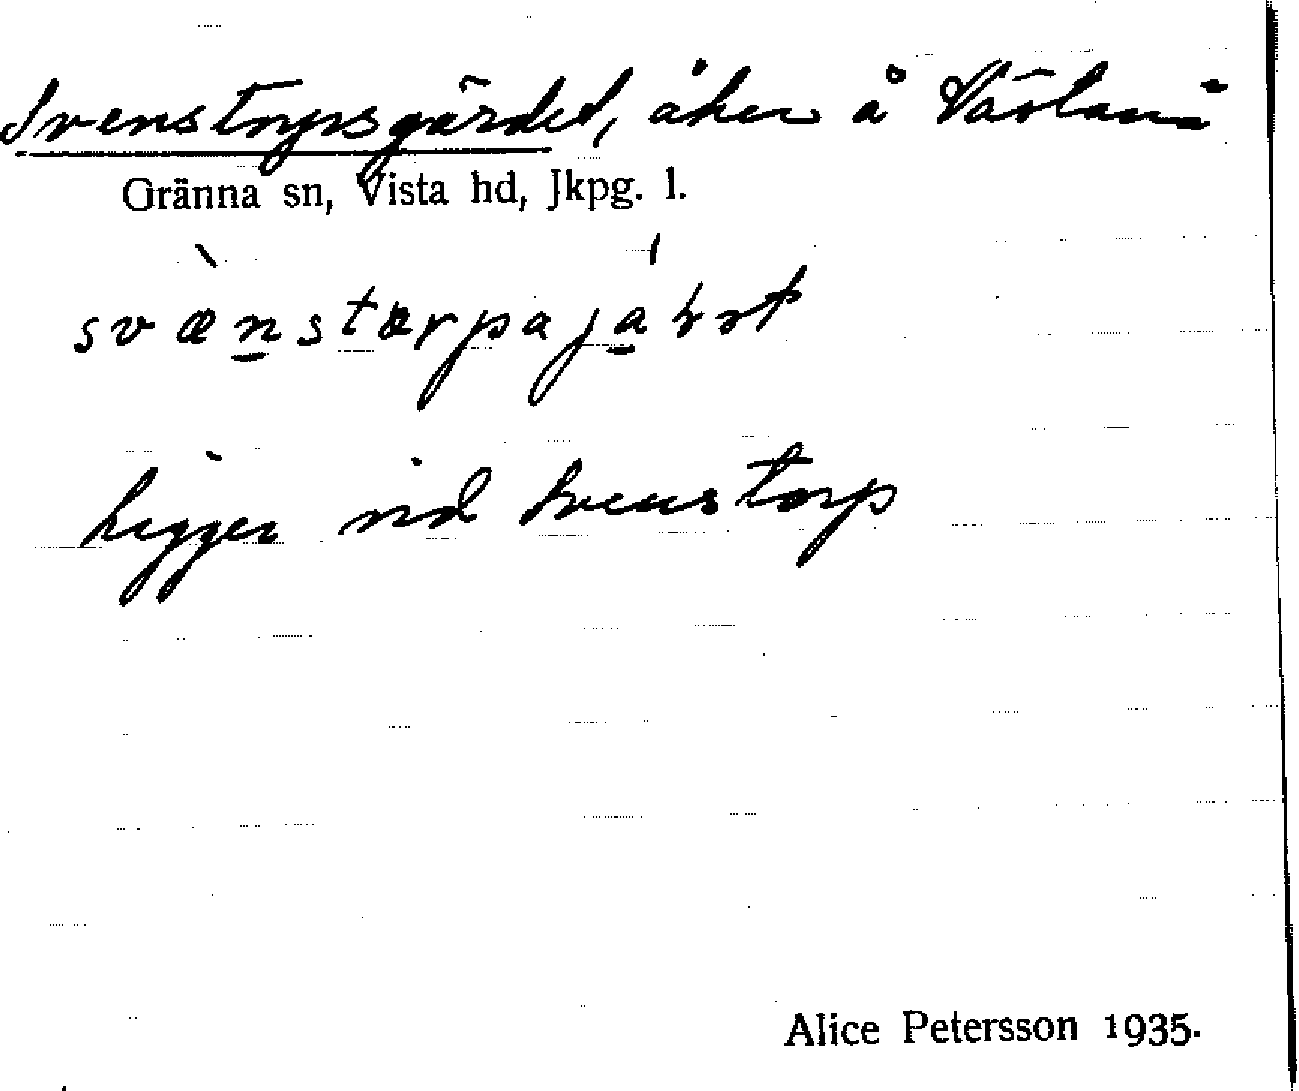 Svenstorpsgärdet, åker å
Gränna sn, Vista hd, Jkpg. l.
Ligger vid Svenstorp
Alice Petersson 1935.